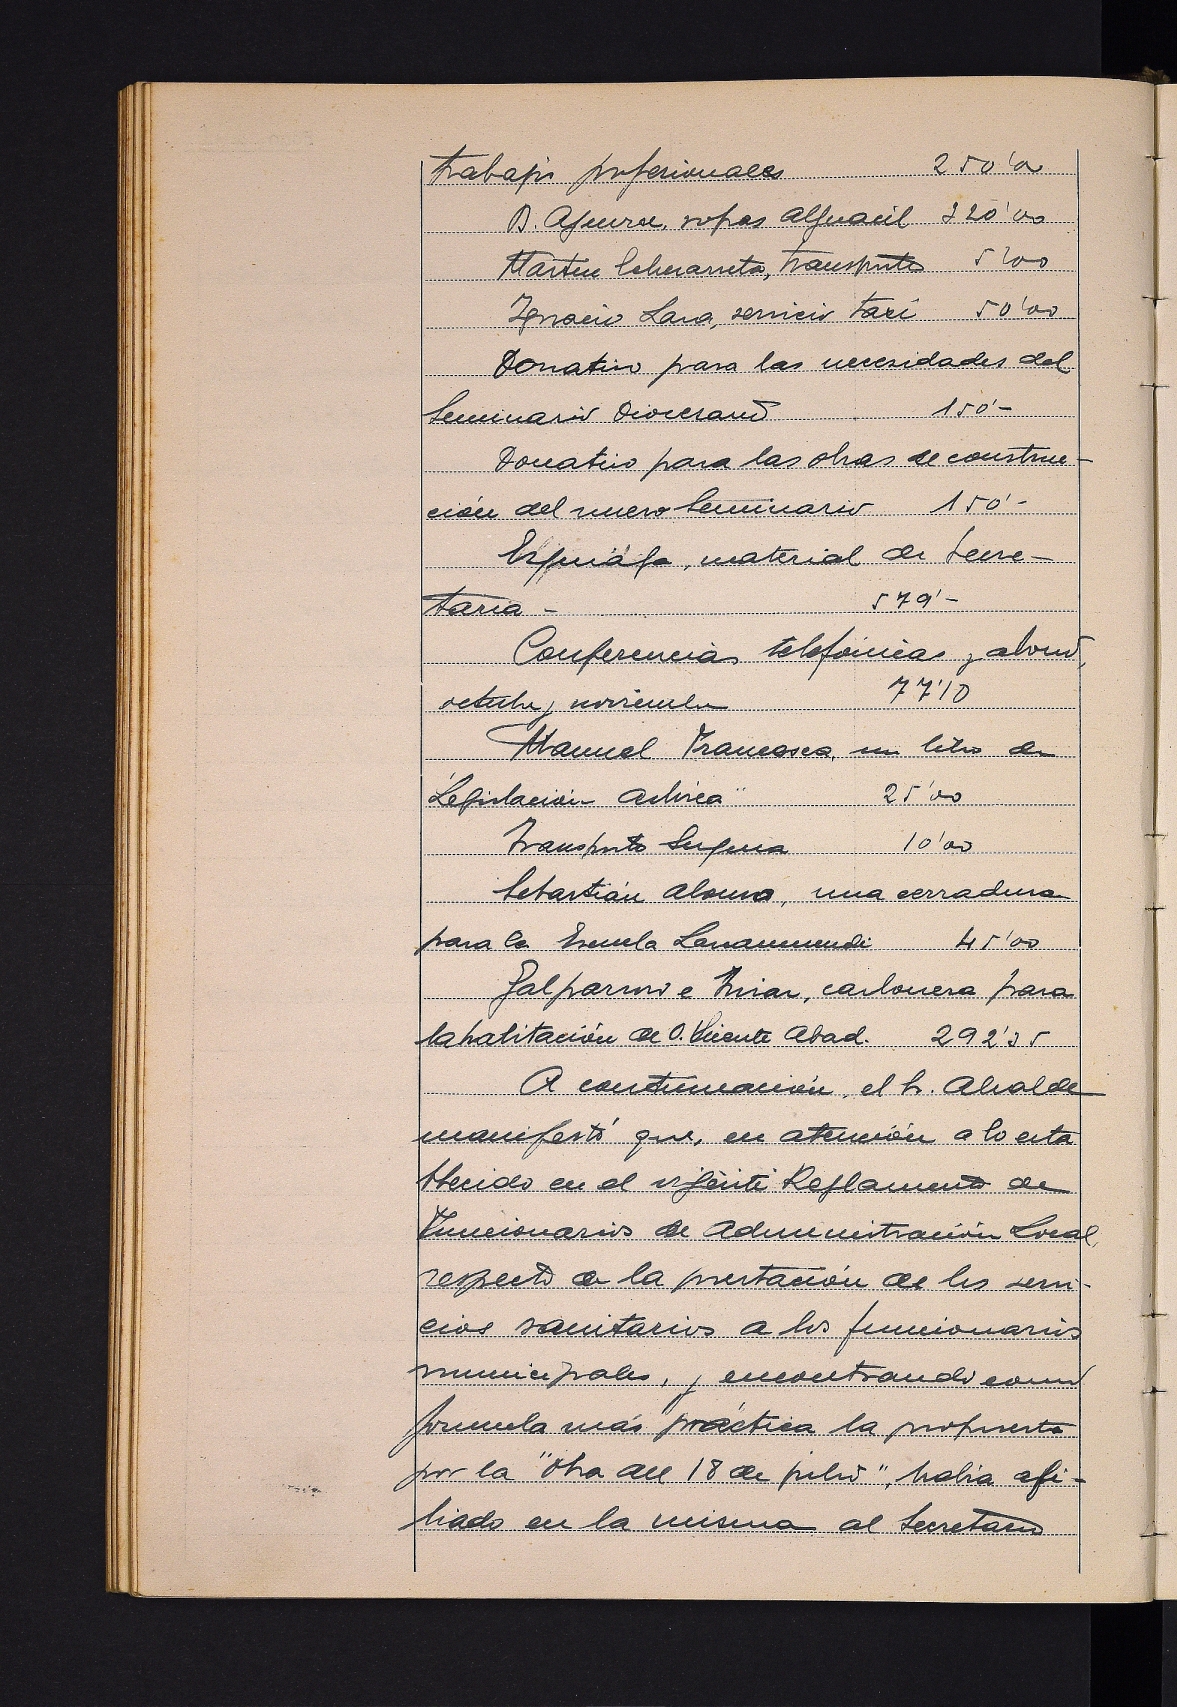 trabajos profesionales 250'00
B. Aguirre, ropas alguacil 320'00
Martín Echevarreta, transportes 5'00
Ignacio Lara, servicio taxi 50'00
Donativo para las necesidades del
Seminario Diocesano 150'-
Donativo para las obras de construc-
ción del nuevo Seminario 150'-
material de Secre-
taría - 579'-
Conferencias telefónicas y abono,
octubre y noviembre 77'10
Manuel un libro de
"Legislación 25'00
Transportes 10'00
Sebastián Alonso, una cerradura
para la Escuela Larramendi 45'00
Galparsoro e carbonera para
la habitación de D. Vicente Abad. 292'35
A continuación, el Sr. Alcalde
manifestó que, en atención a lo esta
blecido en el vigente Reglamento de
Funcionarios de Administración Local,
respecto de la prestación de los servi-
cios sanitarios a los funcionarios
municipales, y encontrando como
fórmula más práctica la propuesta
por la "Obra del 18 de julio", había afi-
liado en la misma al Secretario